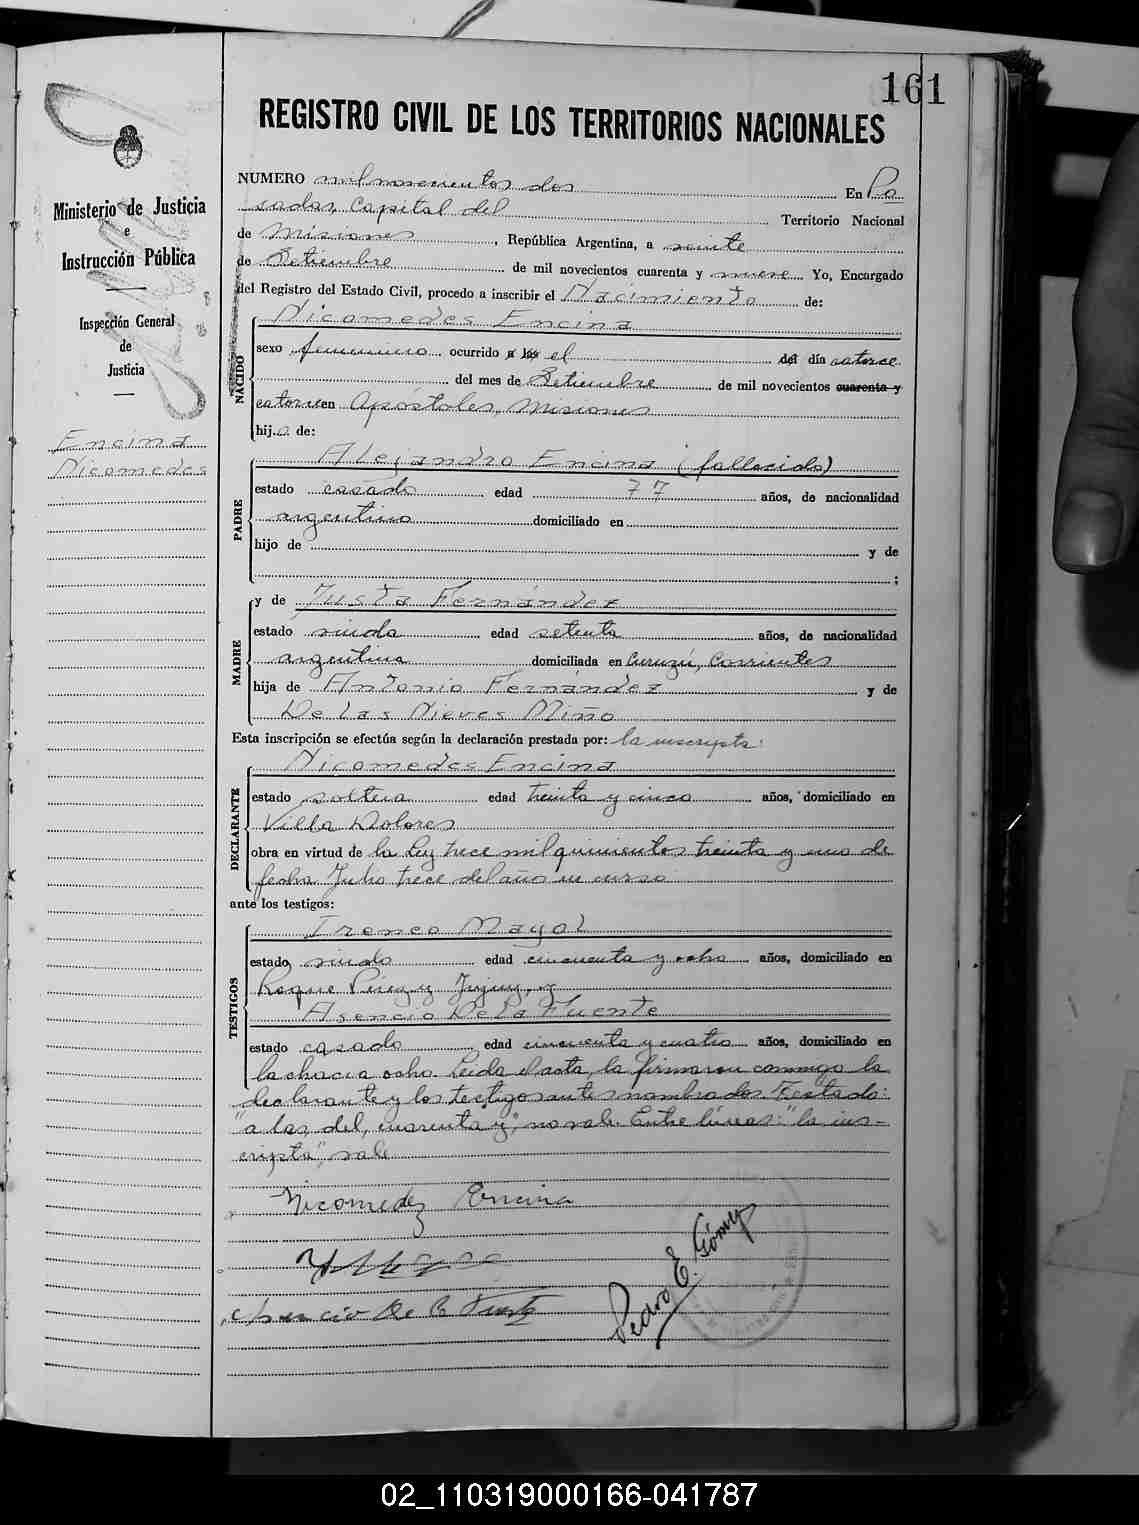 161
REGISTRO CIVIL DE LOS TERRITORIOS NACIONALES
Ministerio de Justicia
e
Instrucción Pública
Inspección General
de
Justicia
Encina
Nicomedes
NUMERO mil novecientos dos En Po
sadas, Capital del Territorio Nacional
de Misiones, República Argentina, a veinte
de Setiembre de mil novecientos cuarenta y nueve Yo, Encargado
del Registro del Estado Civil, procedo a inscribir el Nacimiento de:
NACIDO
Nicomedes Encina
sexo femenino ocurrido a las el del día catorce
del mes de Setiembre de mil novecientos cuarenta y
catorce en Apóstoles, Misiones
hija de:
PADRE
Alejandro Encina (fallecido)
estado casado edad 77 años, de nacionalidad
argentino domiciliado en
hijo de y de
;
MADRE
y de Justa Fernández
estado viuda edad setenta años, de nacionalidad
argentina domiciliada en Curuzú, Corrientes
hija de Antonio Fernández y de
De Las Nieves Miño
Esta inscripción se efectúa según la declaración prestada por: la inscripta:
DECLARANTE
Nicomedes Encina
estado soltera edad treinta y cinco años, domiciliado en
Villa Dolores
obra en virtud de la Ley trece mil quinientos treinta y uno de
fecha Julio trece del año en curso
ante los testigos:
TESTIGOS
Ireneo Mayol
estado viudo edad cincuenta y ocho años, domiciliado en
Roque Pérez y Jujuy, y
Asencio De la Fuente
estado casado edad cincuenta y cuatro años, domiciliado en
la chacra ocho. Leida el acta, la firmaron conmigo la
declarante y los testigos antes nombrados. Testado:
"a las, del, cuarenta y", no vale. Entre líneas: "la ins-
cripta", vale
Nicomedez Encina
Asencio De la Fuente
Pedro E. Gómez
02_110319000166-041787